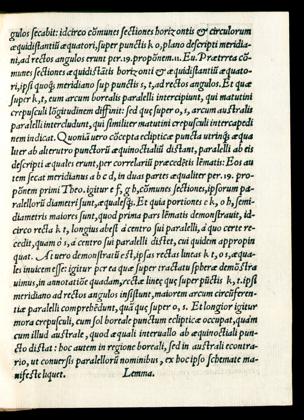 gulos secabit: idcirco cõmunes sectiones horizontis & circulorum
æquidistantiũ æquatori, super punctis k o, plano descripti meridia-
ni, ad rectos angulos erunt per .19. propònem .11. Eu. Prætrrea cõ-
munes sectiones æquidistãtis horizonti & æquidistantiũ æquato-
ri, ipsi quoq; meridiano sup punctis s, t, ad rectos angulos. Et quæ
super k, t, eum arcum borealis paralleli intercipiunt, qui matutini
crepusculi lõgitudinem diffinit: sed quæ super o, s, arcum australis
paralleli intercludunt, qui similiter matutini crepusculi intercapedi
nem indicat. Quoniã uero cõcepta eclipticæ puncta utrinq; æqua
liter ab alterutro punctorũ æquinoctialiũ distant, paralleli ab eis
descripti æquales erunt, per correlariũ præcedẽtis lẽmatis: Eos au
tem secat meridianus a b c d, in duas partes æqualiter per .19. pro-
põnem primi Theo. igitur e f, g b, cõmunes sectiones, ipsorum pa-
rallelorũ diametri sunt, æqualesq;. Et quia portiones c k, o h, semi-
diametris maiores sunt, quod prima pars lẽmatis demonstrauit, id-
circo recta k t, longius abest à centro sui paralleli, à quo certe re-
cedit, quam o s, à centro sui paralleli distet, cui quidem appropin
quat. At uero demonstratũ est, ipsas rectas lineas k t, o s, æqua-
les inuicem esse: igitur per ea quæ super tractatu sphæræ demõstra
uimus, in annotatiõe quadam, rectæ lineę quę super pũctis k, t, ipsi
meridiano ad rectos angulos insistunt, maiorem arcum circũferen-
tiæ paralleli comprehẽdunt, quã quę super o, s. Et longior igitur
mora crepusculi, cum sol boreale punctum eclipticæ occupat, quàm
cum illud australe, quod æquali interuallo ab æquinoctiali pun-
cto distat: hoc autem in regione boreali, sed in australi econtra-
rio, ut conuersis parallelorũ nominibus, ex hoc ipso schemate ma-
nifeste liquet. Lemma.